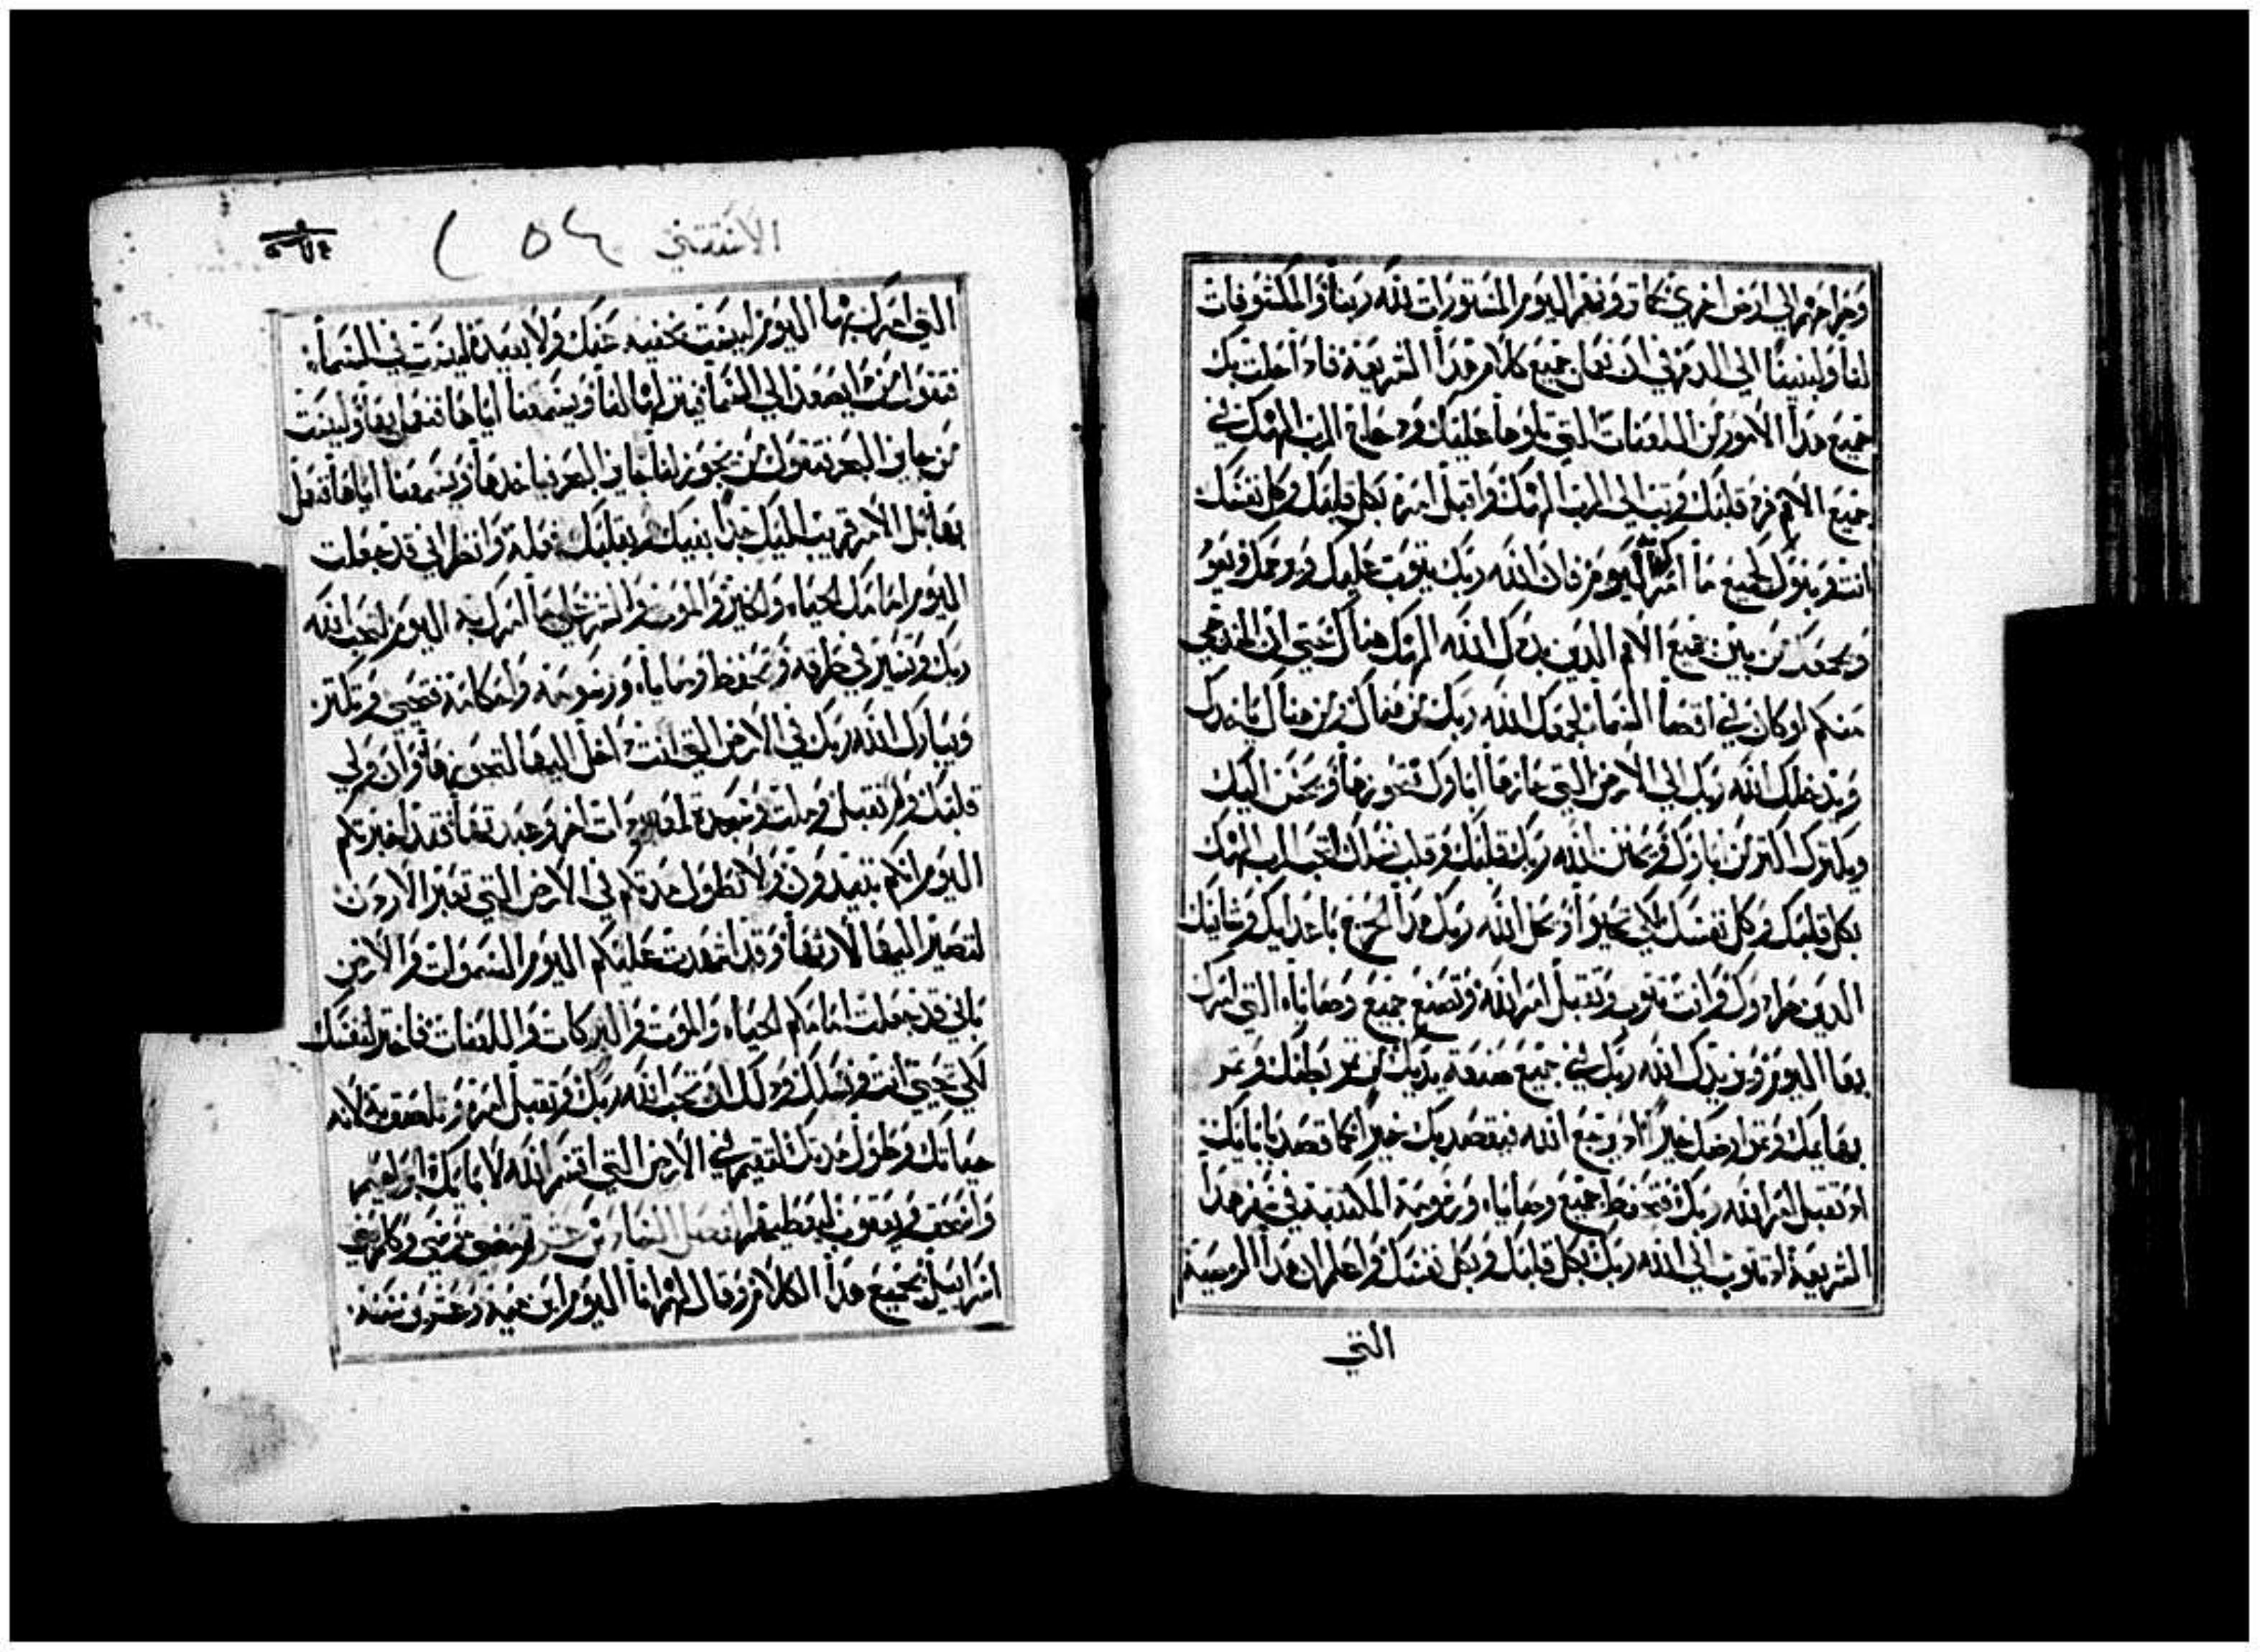 واخرجهم الي ارض اخري كما تروهم اليوم المستورات لله ربنا والمكشوفات
لنا ولبنينا الي الدهر في ان نعمل جميع كلام هذا الشريعة فاذا حلت بك
جميع هذا الامور من اللعنات التي تلوها عليك وذحاع الرب الهك في
جميع الامم فرد قلبك وتب الي الرب الهك واقبل امره بكل قلبك وكل نفسك
انت وبنوك لجميع ما امرك اليوم فان الله ربك يتوب عليك ويرحمك ويعود
ويجمعك من بين جميع الامم الذين بددك الله الهك هناك حتي ان الخارجي
منكم لو كان في اقصا السما يجمعك الله ربك من هناك ومن هناك ياخدك
ويدخلك الله ربك الي الارض التي حازها اباوك تحوزها ويحسن اليك
ويكترك اكتر من اباوك ويختن الله ربك قلبك وقلب نسلك لتحب الرب الهك
بكل قلبك وكل نفسك لكي تحيوا ويحل الله ربك هذا الحرج باعدايك وشانيك
الدين طردوك وانت تتوب وتقبل امر الله وتصنع جميع وصاياه التي امرك
بها اليوم ويزيدك الله ربك في جميع صنعة يديك من تمر بطنك وتمر
بهايمك وتمر ارضك خيرا اذ يرجع الله فيقصد بك خيرا كما قصد بابايك
اذ تقبل امر الله ربك فتحفظ جميع وصاياه ورسومه المكتتبة في سفر هذا
الشريعة اذ تتوب الي الله ربك بكل قلبك وبكل نفسك واعلم ان هذا الوصية
التي
الاستتني
٢٥٤
التي امرك بها اليوم ليست بخفيه عنك ولا بعيدة ليست في السما
فتقول من يصعد الي السما فينزلها لنا ويسمعنا اياها فنعمل بها وليست
من جاي البحر فتقول من يجوز لنا جاي البحر فياخدها ويسمعنا اياها فنعمل
بها بل الامر قريب اليك جدا بفيك وبقلبك فعله وانظر اني قد جعلت
اليوم امامك الحياه والخير والموت والشر علي ما امرك به اليوم لتحب الله
ربك وتسير في طرقه وتحفظ وصاياه ورسومه واحكامه فتحيي وتكتر
ويبارك الله ربك في الارض التي انت داخل اليها لتحوزها وان ولي
قلبك ولم تقبل وملت وسجدت لمعبودات اخر وعبدتها فقد اخبرتكم
اليوم انكم تبيدون ولا تطول مدتكم في الارض التي تعبر الاردن
لتصير اليها لارتها وقد اشهدت عليكم اليوم السموات والارض
باني قد جعلت امامكم الحياه والموت والبركات واللعنات فاختر لنفسك
لكي تحيي انت ونسلك وذلك ان تحب الله ربك وتقبل امره وتلصق به لانه
حياتك وطول مدتك لتقيم في الارض التي اقسم الله لابايك ابراهيم
واسحق ويعقوب ليعطيهم الفصل الحادي عشر تم مضي موسي وكلم بني
اسراييل بجميع هذا الكلام وقال لهم انا اليوم ابن مية وعشرين سنة